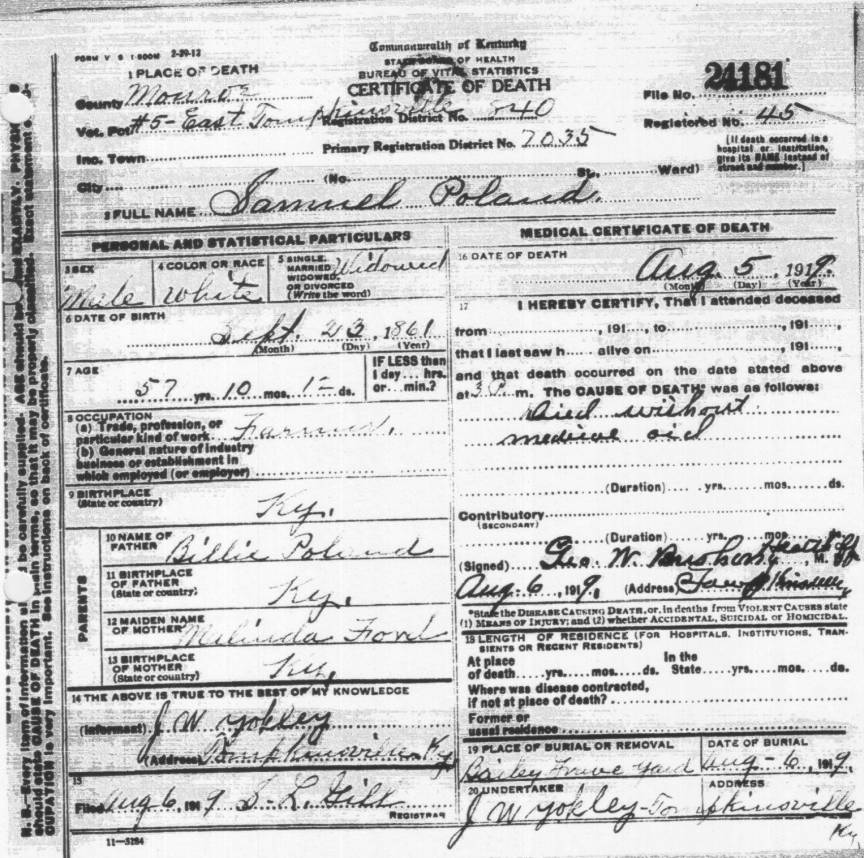 FORM V S 1-500M 2-29-12
Commonwealth of Kentucky
STATE BOARD OF HEALTH
BUREAU OF VITAL STATISTICS
CERTIFICATE OF DEATH
1 PLACE OF DEATH
County Monroe
Vot. Pct #5-East Tompkinsville
Inc. Town
City (No. St., Ward)
Registration District No. 840
Primary Registration District No. 7035
File No. 24181
Registered No. 45
[If death occurred in a hospital or institution, give its NAME instead of street and number.]
2 FULL NAME Samuel Poland.
PERSONAL AND STATISTICAL PARTICULARS
3 SEX
Male
4 COLOR OR RACE
White
5 SINGLE, MARRIED, WIDOWED, OR DIVORCED
(Write the word)
Widowed
6 DATE OF BIRTH
Sept. 23, 1861
(Month) (Day) (Year)
7 AGE
57 yrs. 10 mos. 12 ds.
IF LESS than
1 day... hrs.
or... min.?
8 OCCUPATION
(a) Trade, profession, or
particular kind of work Farmer.
(b) General nature of industry
business or establishment in
which employed (or employer)
9 BIRTHPLACE
(State or country)
Ky.
PARENTS
10 NAME OF
FATHER Billie Poland
11 BIRTHPLACE
OF FATHER
(State or country) Ky.
12 MAIDEN NAME
OF MOTHER Melinda Ford
13 BIRTHPLACE
OF MOTHER
(State or country) Ky.
14 THE ABOVE IS TRUE TO THE BEST OF MY KNOWLEDGE
(Informant) J W Yokley
(Address) Tompkinsville Ky
15
Filed Aug 6, 1919 S. L. Gill
REGISTRAR
11-5184
MEDICAL CERTIFICATE OF DEATH
16 DATE OF DEATH
Aug. 5, 1919.
(Month) (Day) (Year)
17 I HEREBY CERTIFY, That I attended deceased
from , 191 , to , 191 ,
that I last saw h alive on , 191 ,
and that death occurred on the date stated above
at 3 P. m. The CAUSE OF DEATH* was as follows:
Died without
medical aid
(Duration) yrs. mos. ds.
Contributory
(SECONDARY)
(Duration) yrs. mos.
(Signed) Geo. W. Bushong M.
Aug. 6, 1919. (Address)
*State the DISEASE CAUSING DEATH, or, in deaths from VIOLENT CAUSES state
(1) MEANS OF INJURY; and (2) whether ACCIDENTAL, SUICIDAL or HOMICIDAL.
18 LENGTH OF RESIDENCE (FOR HOSPITALS, INSTITUTIONS, TRANSIENTS OR RECENT RESIDENTS)
At place
of death yrs. mos. ds.
In the
State yrs. mos. ds.
Where was disease contracted,
if not at place of death?
Former or
usual residence
19 PLACE OF BURIAL OR REMOVAL
Bailey Grave Yard
DATE OF BURIAL
Aug-6, 1919.
20 UNDERTAKER
J W Yokley
ADDRESS
Tompkinsville
Ky
N. B.—Every item of information should be carefully supplied. AGE should be stated EXACTLY. PHYSICIANS
should state CAUSE OF DEATH in plain terms, so that it may be properly classified. Exact statement of
OCCUPATION is very important. See instructions on back of certificate.